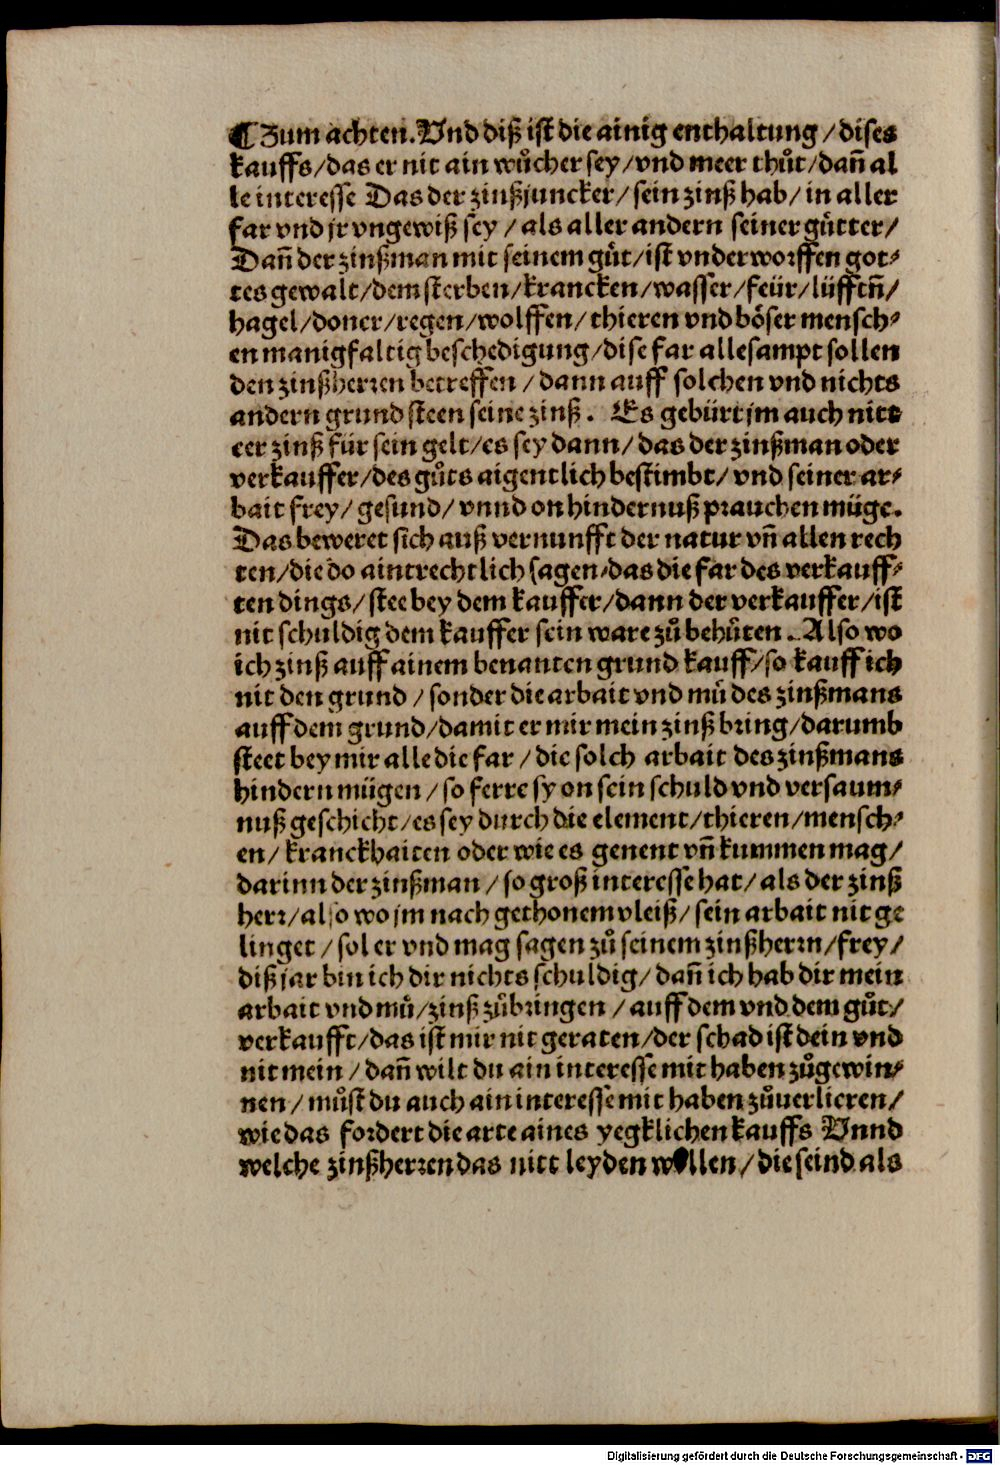 ¶Zum achten. Vnd diß ist die ainig enthaltung /dises
kauffs/das er nit ain wůcher sey/vnd meer thůt/dañ al
le interesse Das der zinßjuncker/ sein zinß hab/ in aller
far vnd jr vngewiß sey / als aller andern seiner gůtter/
Dañ der zinßman mit seinem gůt/ist vnderworffen got⸗
tes gewalt/dem sterben/krancken/wasser/feür/lüfftñ/
hagel/doner/regen/wolffen/ thieren vnd böser mensch⸗
en manigfaltig beschedigung/dise far allesampt sollen
den zinßherren betreffen / dann auff solchen vnd nichts
andern grund steen seine zinß. Es gebürt jm auch nitt
eer zinß für sein gelt/es sey dann/ das der zinßman oder
verkauffer/des gůts aigentlich bestimbt/ vnd seiner ar⸗
bait frey/ gesund/ vnnd on hindernuß prauchen müge.
Das beweret sich auß vernunfft der natur vñ allen rech
ten/die do aintrechtlich sagen/das die far des verkauff⸗
ten dings/ stee bey dem kauffer/dann der verkauffer/ist
nit schuldig dem kauffer sein ware zů behůten. Also wo
ich zinß auff ainem benanten grund kauff/so kauff ich
nit den grund / sonder die arbait vnd můͤ des zinßmans
auff dem grund/damit er mir mein zinß bring/darumb
steet bey mir alle die far / die solch arbait des zinßmans
hindern mügen / so ferre sy on sein schuld vnd versaum⸗
nuß geschicht/es sey durch die element/thieren/mensch⸗
en/ kranckhaiten oder wie es genent vñ kummen mag/
darinn der zinßman / so groß interesse hat/ als der zinß
herr/also wo jm nach gethonem vleiß/ sein arbait nit ge
linget / sol er vnd mag sagen zů seinem zinßherrn/frey/
diß jar bin ich dir nichts schuldig/ dañ ich hab dir mein
arbait vnd mů/zinß zůbringen / auff dem vnd dem gůt/
verkaufft/das ist mir nit geraten/der schad ist dein vnd
nit mein / dañ wilt du ain interesse mit haben zůgewin⸗
nen / můst du auch ain interesse mit haben zůuerlieren/
wie das fordert die arte aines yegklichen kauffs Vnnd
welche zinßherren das nitt leyden wollen/ die seind als
Digitalisierung gefördert durch die Deutsche Forschungsgemeinschaft - DFG